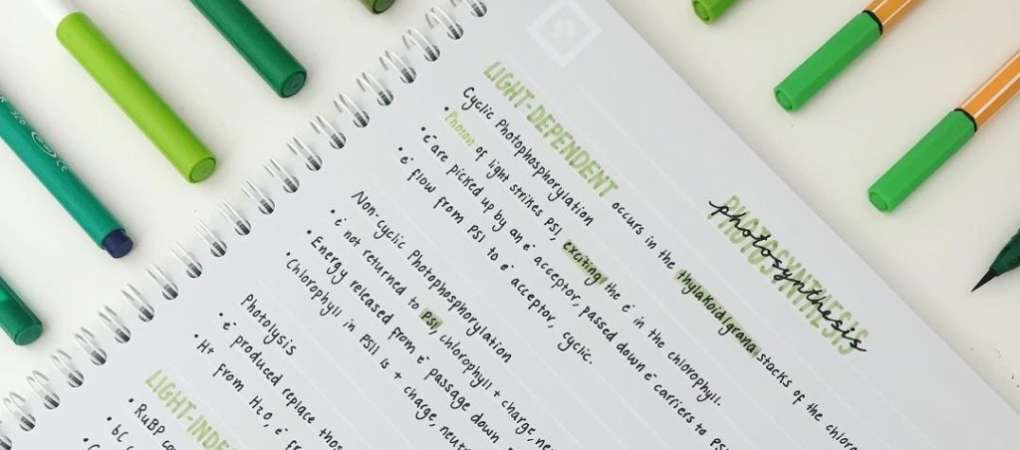 PHOTOSYNTHESIS
photosynthesis
LIGHT-DEPENDENT occurs in the thylakoid/grana stacks of the
Cyclic Photophosphorylation
• Photon of light strikes PSI, exciting the e⁻ in the chlorophyll.
• e⁻ are picked up by an e⁻ acceptor, passed down e⁻ carriers to
• e⁻ flow from PSI to e⁻ acceptor, cyclic.
Non-cyclic Photophosphorylation
• e⁻ not returned to PSI, chlorophyll + charge,
• Energy released from e⁻ passage down
• Chlorophyll in PSII is + charge,
Photolysis
• e⁻ produced replace
• H+ from H2O, e⁻
LIGHT-
• RuBP
• 6C